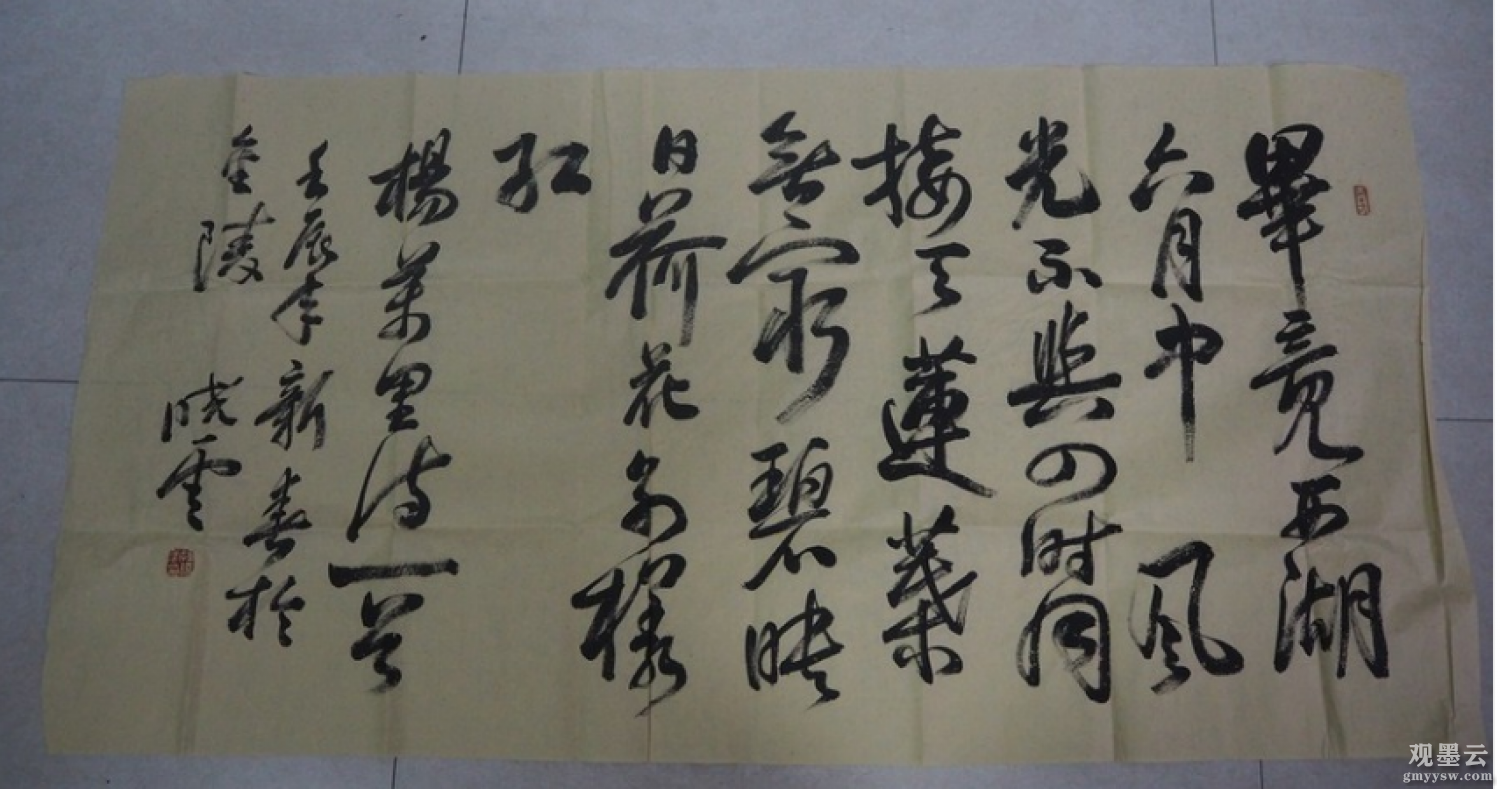 畢竟西湖
六月中風
光不與四時同
接天蓮葉
無窮碧映
日荷花別樣
紅
楊萬里詩一首
壬辰年新春於
金陵 晓雲
观墨云
gmyysw.com